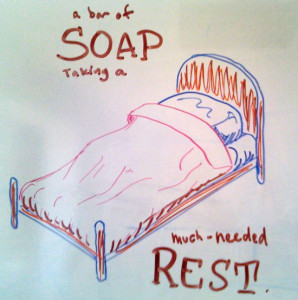 a bar of
SOAP
Taking a
much-needed
REST.